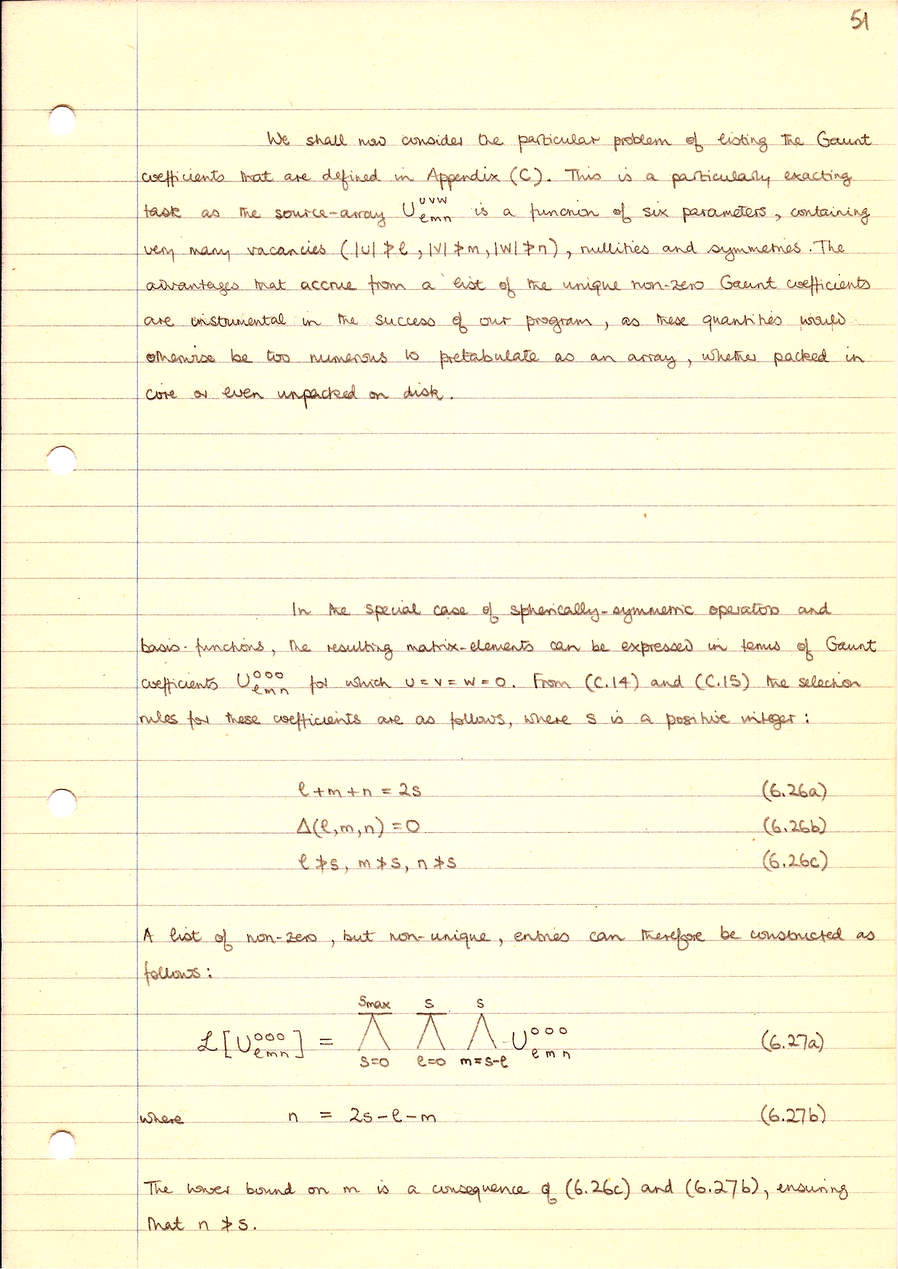 51
We shall now consider the particular problem of listing the Gaunt
coefficients that are defined in Appendix (C). This is a particularly exacting
task as the source-array U^{UVW}_{ℓmn} is a function of six parameters, containing
very many vacancies (|U| ≯ ℓ, |V| ≯ m, |W| ≯ n), nullities and symmetries. The
advantages that accrue from a list of the unique non-zero Gaunt coefficients
are instrumental in the success of our program, as these quantities would
otherwise be too numerous to pretabulate as an array, whether packed in
core or even unpacked on disk.
In the special case of spherically-symmetric operators and
basis-functions, the resulting matrix-elements can be expressed in terms of Gaunt
coefficients U^{000}_{ℓmn} for which U = V = W = 0. From (C.14) and (C.15) the selection
rules for these coefficients are as follows, where s is a positive integer:
ℓ + m + n = 2s (6.26a)
Δ(ℓ,m,n) = 0 (6.26b)
ℓ ≯ s, m ≯ s, n ≯ s (6.26c)
A list of non-zero, but non-unique, entries can therefore be constructed as
follows:
ℒ[U^{000}_{ℓmn}] = Λ_{s=0}^{smax} Λ_{ℓ=0}^{s} Λ_{m=s-ℓ}^{s} U^{000}_{ℓmn} (6.27a)
where n = 2s - ℓ - m (6.27b)
The lower bound on m is a consequence of (6.26c) and (6.27b), ensuring
that n ≯ s.